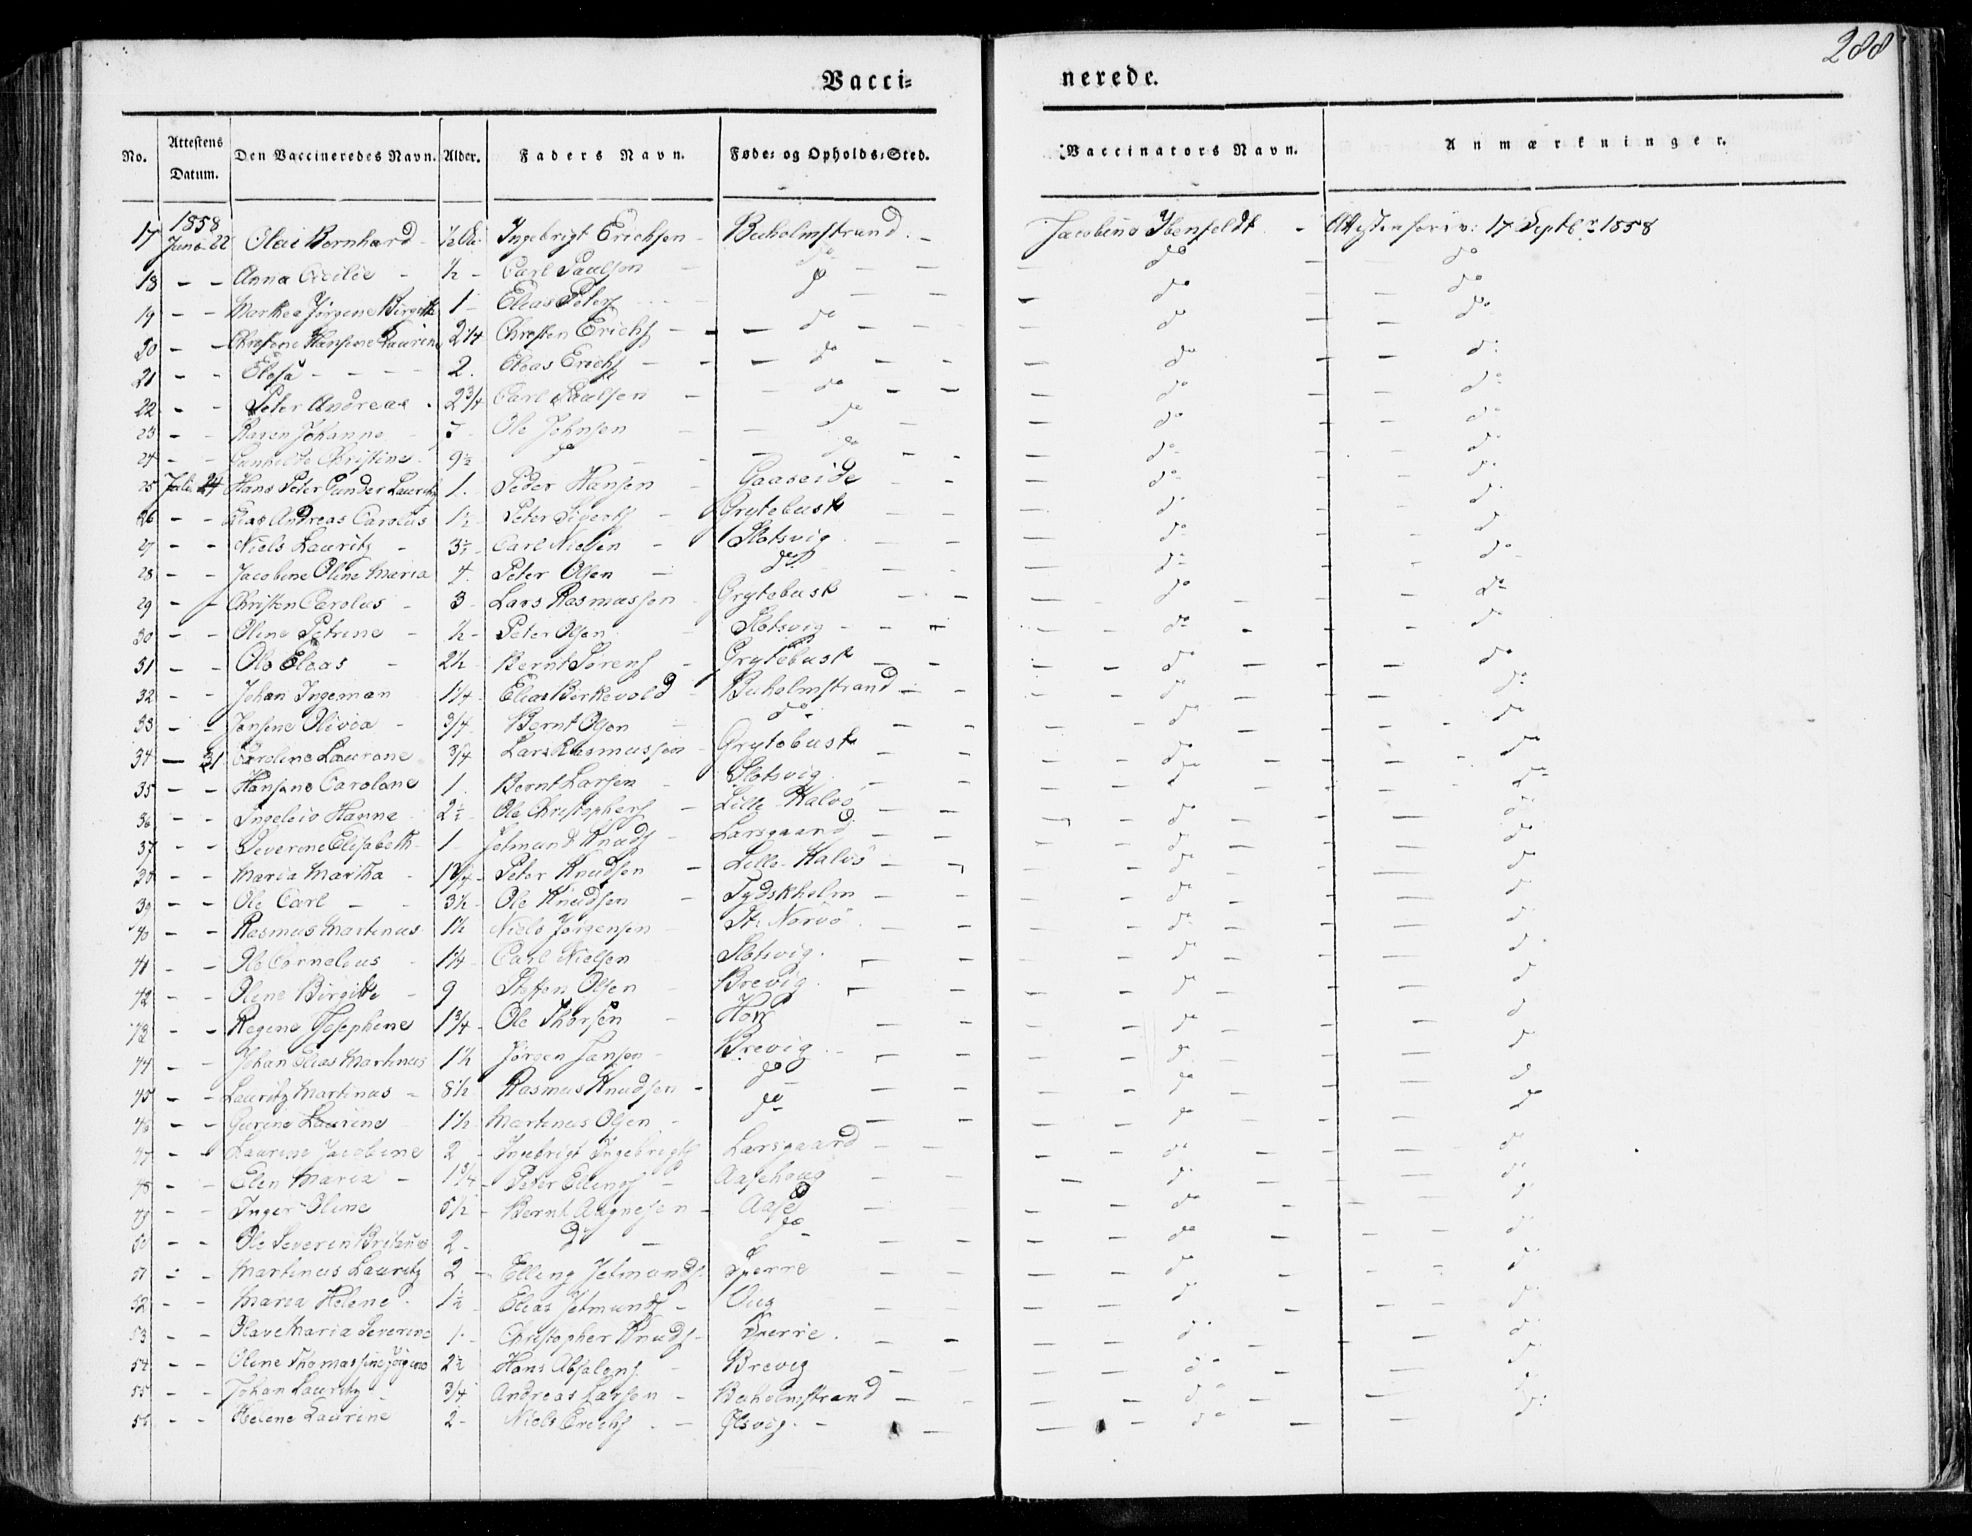 288
Vacci= nerede.
No. Attestens Datum. Den Vaccineredes Navn. Alder. Faders Navn. Føde= og Opholds=Sted. Vaccinators Navn. Anmærkninger.
1858
17 Juni 22 Olai Bernhard ½ Ingebrigt Erichsen Buholmstrand Jacobina Ibenfeldt 17 Septbr 1858
18 - - Anna Cecilie ½ Carl Paulsen do - - - do - - do
19 - - Jørgene Birgitte 1 Elias Peters do - - - do - - do
20 - - Hansine Laurine 2¼ Christen Erichs - - - do - - - do - - do
21 - - 2. Elias Erichs - - - do - - - do - - do
22 - - Peter Andreas 2¾ Carl Paulsen - - do - - - do - - do
23 - - Karen Johanne 5 Ole Johnsen - do - - do - - do
24 - - Christine 9½ do - - - do - - - do - - do
25 Juli 24 Hans Peter Gunder Lauritz 1. Peder Hansen Gaaseide - - - do - - do
26 - - Elias Andreas Carolus 1½ Peter Grytebust - - - do - - do
27 - - Niels Lauritz - 3½ Carl Nielsen - Slotsvig - - - do - - do
28 - - Jacobine Oline Maria 4. Peter Olsen - do - - - do - - do
29 - - Christen Carolus - 3 - Lars Rasmussen Grytebust - - - do - - do
30 - - Oline Petrine - ½ - Peter Olsen Slotsvig - - - do - - do
31 - - Ole Elias - 2½ Bernt Sørens Grytebust - - - do - - do
32 - - Johan Ingeman 1¼ Elias Berkevold Buholmstrand - - - do - - do
33 - - Jensine Olivia - ¾ Bernt Olsen do - - - do - - do
34 - 31 Caroline Laurane ¾ Lars Rasmussen Grytebust - do - - do
35 - - Hansine Carolane 1. Bernt Larsen - Slotsvig - - - do - - do
36 - - Hanna 2½ Ole Christophers Lille Kalvø - - - do - - do
37 - - Severine Elisabeth 1 - Jetmund Knuds Larsgaard - - - do - - do
38 - - Maria Martha - Peter Knudsen Lille Kalvø - - - do - - do
39 - - Ole Carl - - 3½ - Ole Knudsen - Tydskholm - - - do - - do
40 - - Rasmus Martinus 1½ Niels Jørgensen - St. Nørvø - - - do - - do
41 - - Ole Cornelius 1¼ Carl Nielsen Slotsvig. - - - do - - do
42 - - Oline Birgitte - 9 Steffen Olsen - Brevig. - - - do - - do
43 - - Regine Josephine 1¾ - Ole Thorsen Hof - - - do - - do
44 - - Johan Elias Martinus 1½ Jørgen Jansen - Brevig. - - - do - - do
45 - - Lauritz Martinus - 8½ Rasmus Knudsen - do - - - do - - do
46 - - Gurine Laurine 1½ Martinus Olsen do - - - do - - do
47 - - Laurine Jacobine 2 - Ingebrigt Ingebrigts Larsgaard - - - do - - do
48 - - Elen Maria - 1¾ - Peter Ellings - Aasehoug - - do - - do
49 - - Inger Oline 5½ - Bernt Aagnesen - Aase - - do - - do
50 - - Ole Severin 2 - do - do - - - do - - do
51 - - Martinus Lauritz 2 - Elling Jetmunds Sperre - - - do - - do
52 - - Maria Helene 1½ Elias Jetmunds - - - - do - - do
53 - - Olave Maria Severine 1 - Christopher Knuds - Sperre. - - - do - - do
54 - - Oline Thomasine Jørgine 2½ Hans Absalons - Brevig - - - do - - do
55 - - Johan Lauritz - ¾ Andreas Larsen - Buholmstrand - - - do - - do
56 - - Helene Laurine 2 - Niels Erichs - - - - do - - do